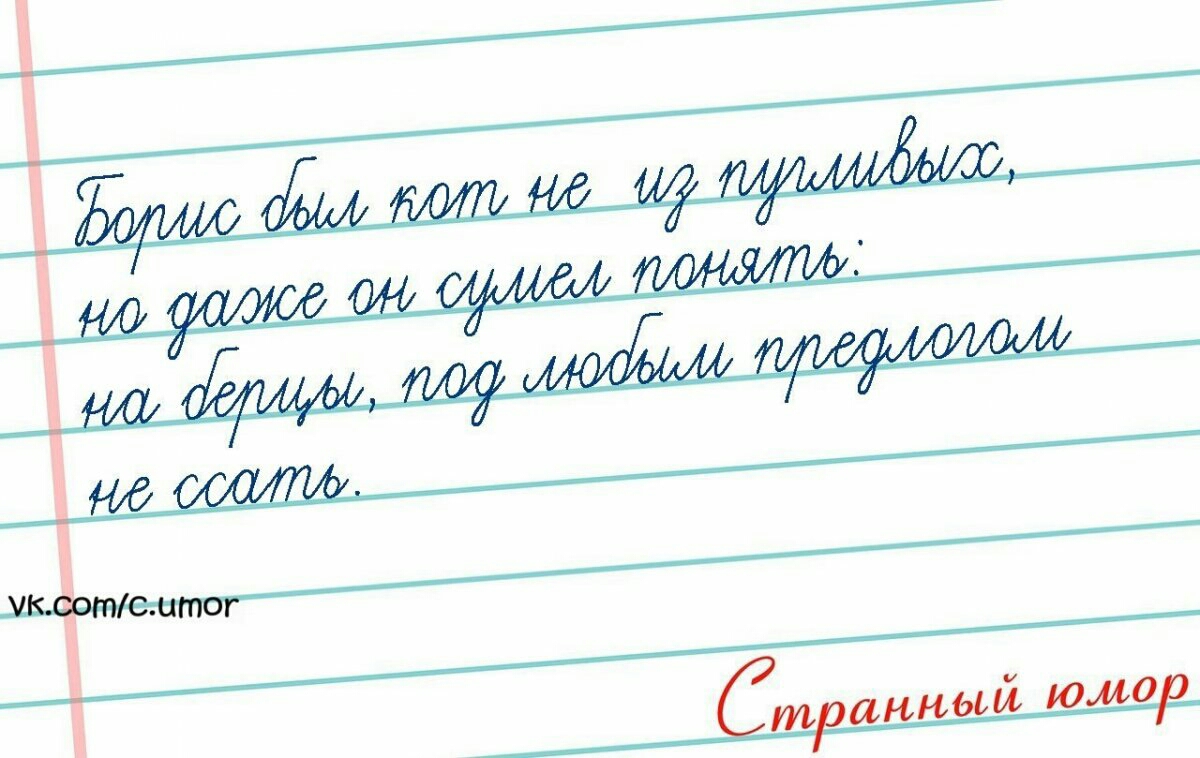 Борис был кот не из пугливых,
но даже он сумел понять:
на берцы, под любым предлогом
не ссать.
vk.com/c.umor
Странный юмор